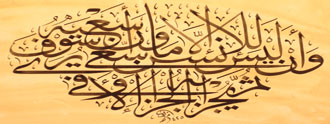 وأن ليس للإنسان إلا ما سعى وأن سعيه سوف يرى
ثم يجزاه الجزاء الأوفى